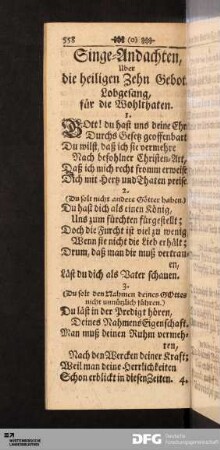 558 (o)
Singe-Andachten,
Uber
die heiligen Zehn Gebot.
Lobgesang,
für die Wohlthaten.
1.
GOtt! du hast uns deine Ehr
Durchs Gesetz geoffenbart
Du wilst, daß ich sie vermehre
Nach befohlner Christen-Art,
Daß ich mich recht fromm erweise
Dich mit Hertz und Thaten preise.
2.
(Du solt nicht andere Götter haben)
Du hast dich als einen König,
Uns zum fürchten fürgestellt;
Doch die Furcht ist viel zu wenig
Wenn sie nicht die Lieb erhält;
Drum, daß man dir muß vertrau-
en,
läst du dich als Vater schauen.
3.
(Du solt den Nahmen deines GOttes
nicht unnützlich führen.)
Du läst in der Predigt hören,
Deines Nahmens Eigenschaft.
Man muß deinen Ruhm vermeh-
ren,
Nach den Wercken deiner Kraft;
Weil man deine Herrlichkeiten
Schon erblickt in diesen Zeiten. 4.
DFG Deutsche
Forschungsgemeinschaft